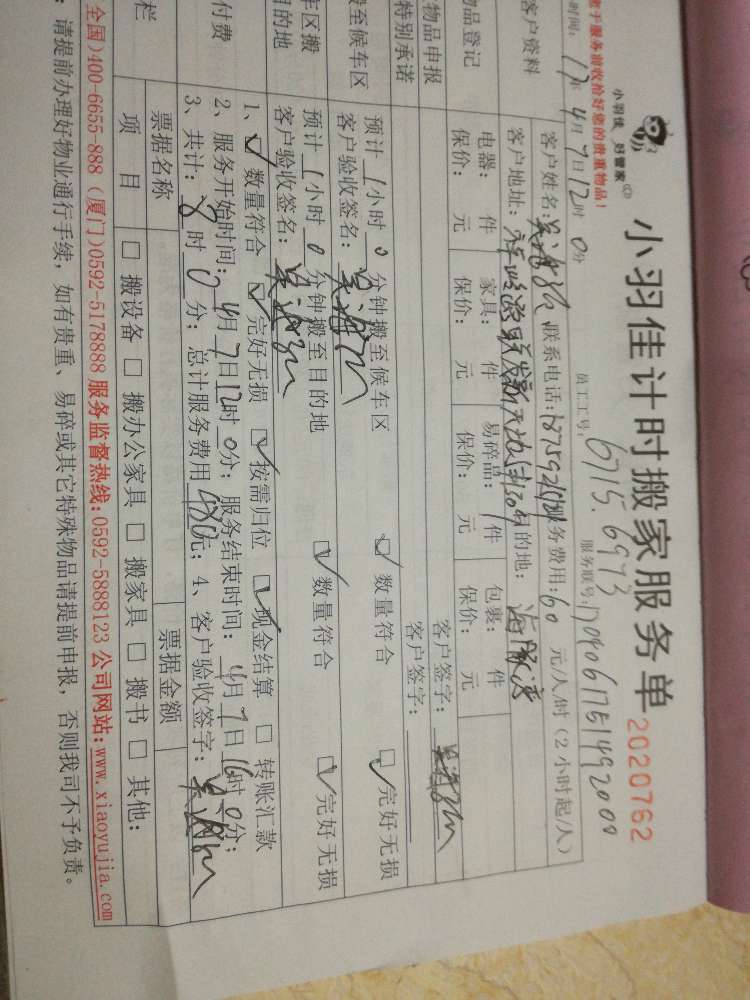 小羽佳 好管家
小羽佳计时搬家服务单
2020762
服务前请收拾好您的贵重物品!
员工工号: 6715.6973
时间: 17年 4月 7日 12时 0分 服务联号:
客户资料
客户姓名: 联系电话: 服务费用: 60 元/人/时 (2小时起/人)
客户地址: 目的地:
物品登记
电器: 件 家具: 件 易碎品: 件 包裹: 件
保价: 元 保价: 元 保价: 元 保价: 元
物品申报 客户签字:
特别承诺 客户签字:
搬至候车区
预计 1 小时 0 分钟搬至候车区 ☑ 数量符合 ☑ 完好无损
客户验收签名:
车区搬
目的地
预计 1 小时 0 分钟搬至目的地 ☑ 数量符合 ☑ 完好无损
客户验收签名:
付费
1、☑ 数量符合 ☑ 完好无损 ☑ 按需归位 ☑ 现金结算 □ 转账汇款
2、服务开始时间: 4月 7日 12时 0分; 服务结束时间: 4月 7日 16时 0分;
3、共计: 8 时 0 分; 总计服务费用 480 元; 4、客户验收签字:
票据名称 票据金额
栏
项 目 □ 搬设备 □ 搬办公家具 □ 搬家具 □ 搬书 □ 其他:
全国)400-6655-888 (厦门)0592-5178888 服务监督热线:0592-5888123 公司网站:www.xiaoyujia.com
: 请提前办理好物业通行手续, 如有贵重、易碎或其它特殊物品请提前申报, 否则我司不予负责。